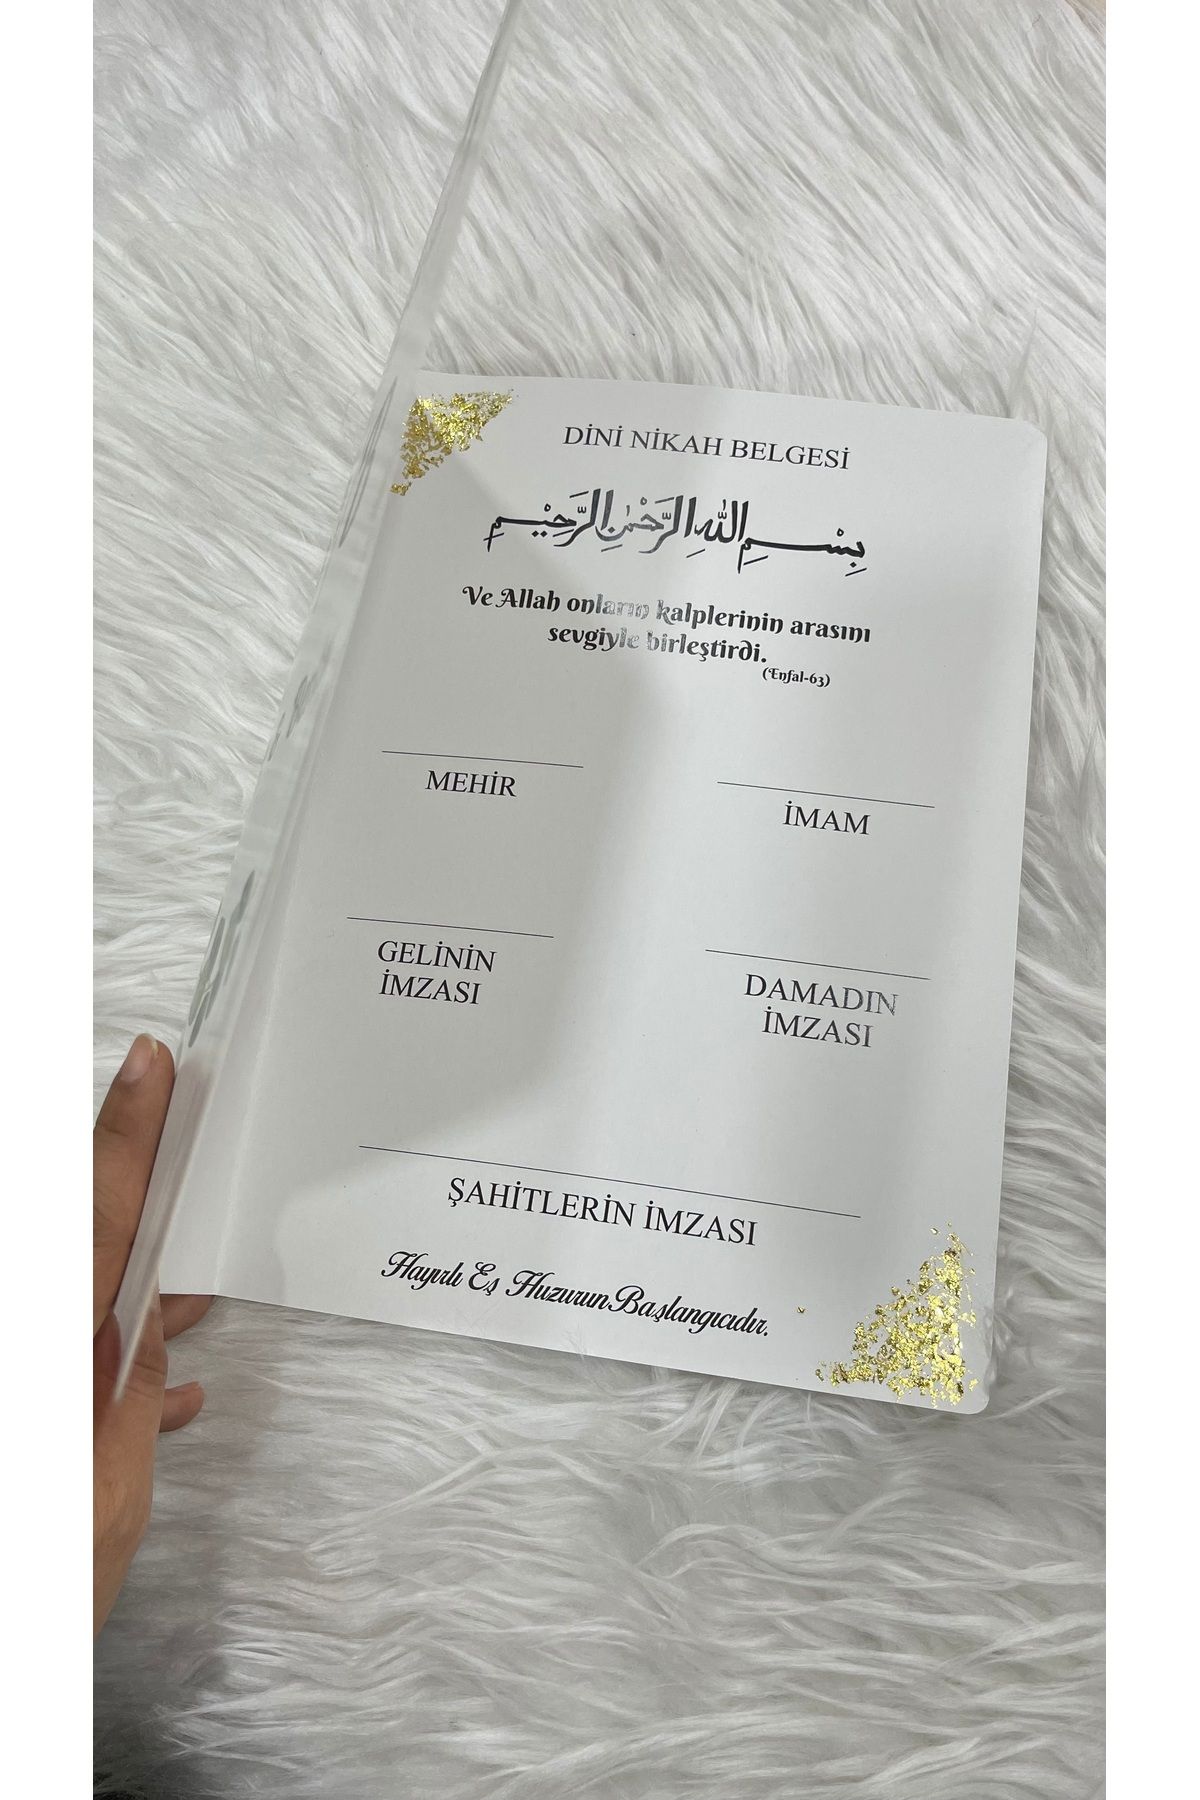 DİNİ NİKAH BELGESİ
بِسْمِ اللهِ الرَّحْمٰنِ الرَّحِيْمِ
Ve Allah onların kalplerinin arasını
sevgiyle birleştirdi.
(Enfal-63)
MEHİR
İMAM
GELİNİN
İMZASI
DAMADIN
İMZASI
ŞAHİTLERİN İMZASI
Hayırlı Eş Huzurun Başlangıcıdır.